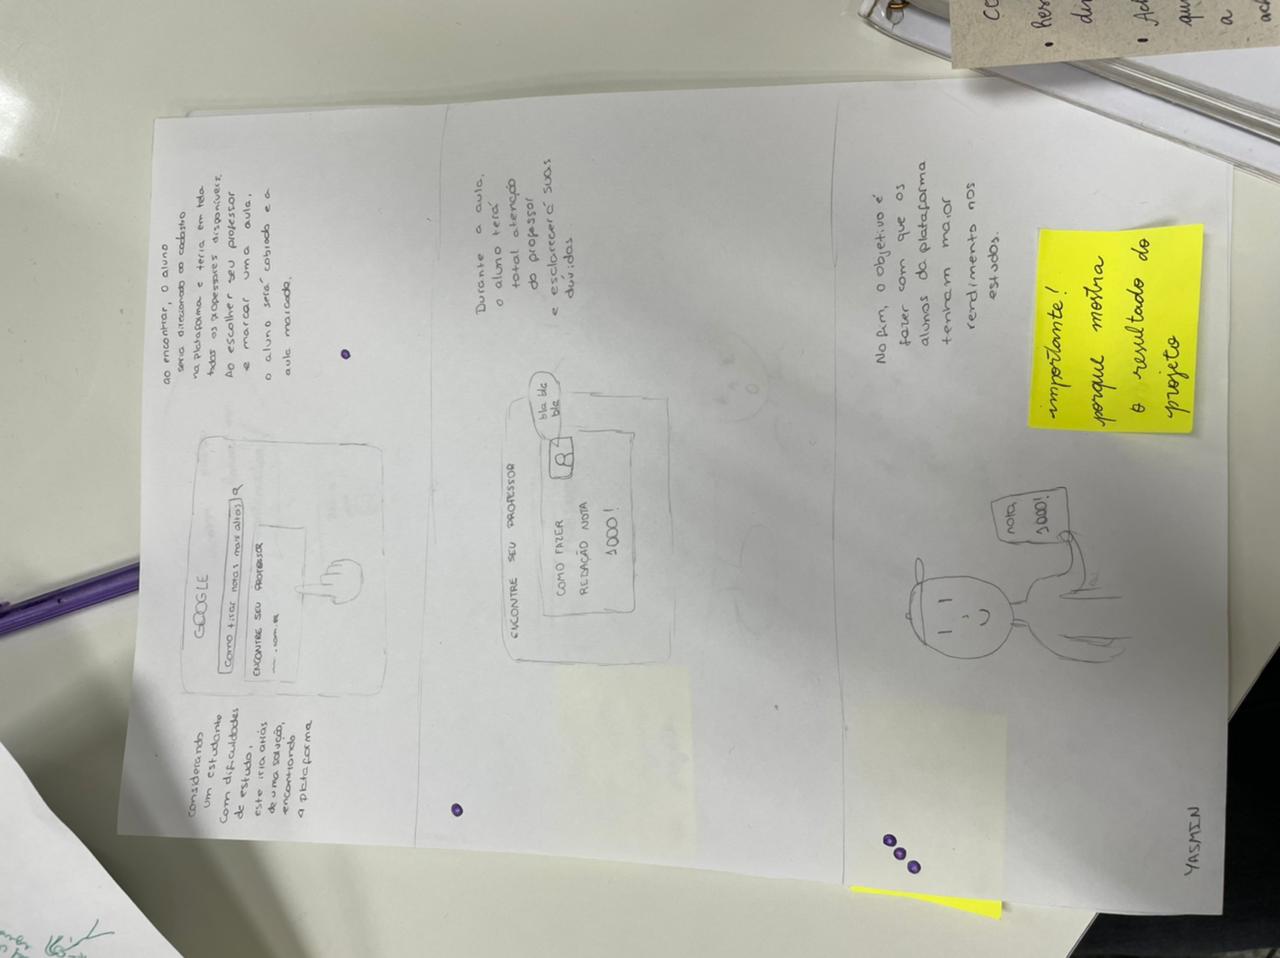 considerando
um estudante
com dificuldades
de estudo,
este iria atrás
de uma solução,
encontrando
a plataforma
GOOGLE
como tirar notas mais altas
ENCONTRE SEU PROFESSOR
.com.br
ao encontrar, o aluno
seria direcionado ao cadastro
na plataforma e teria em tela
todos os professores disponíveis.
Ao escolher seu professor
e marcar uma aula,
o aluno será cobrado e a
aula marcada.
ENCONTRE SEU PROFESSOR
COMO FAZER
REDAÇÃO NOTA
1000!
bla bla
bla
Durante a aula,
o aluno terá
total atenção
do professor
e esclarecerá suas
dúvidas.
nota
1000!
No fim, o objetivo é
fazer com que os
alunos da plataforma
tenham maior
rendimento nos
estudos.
importante!
porque mostra
o resultado do
projeto
YASMIN
CO
• Res
di
• Ad
qu
a
ac